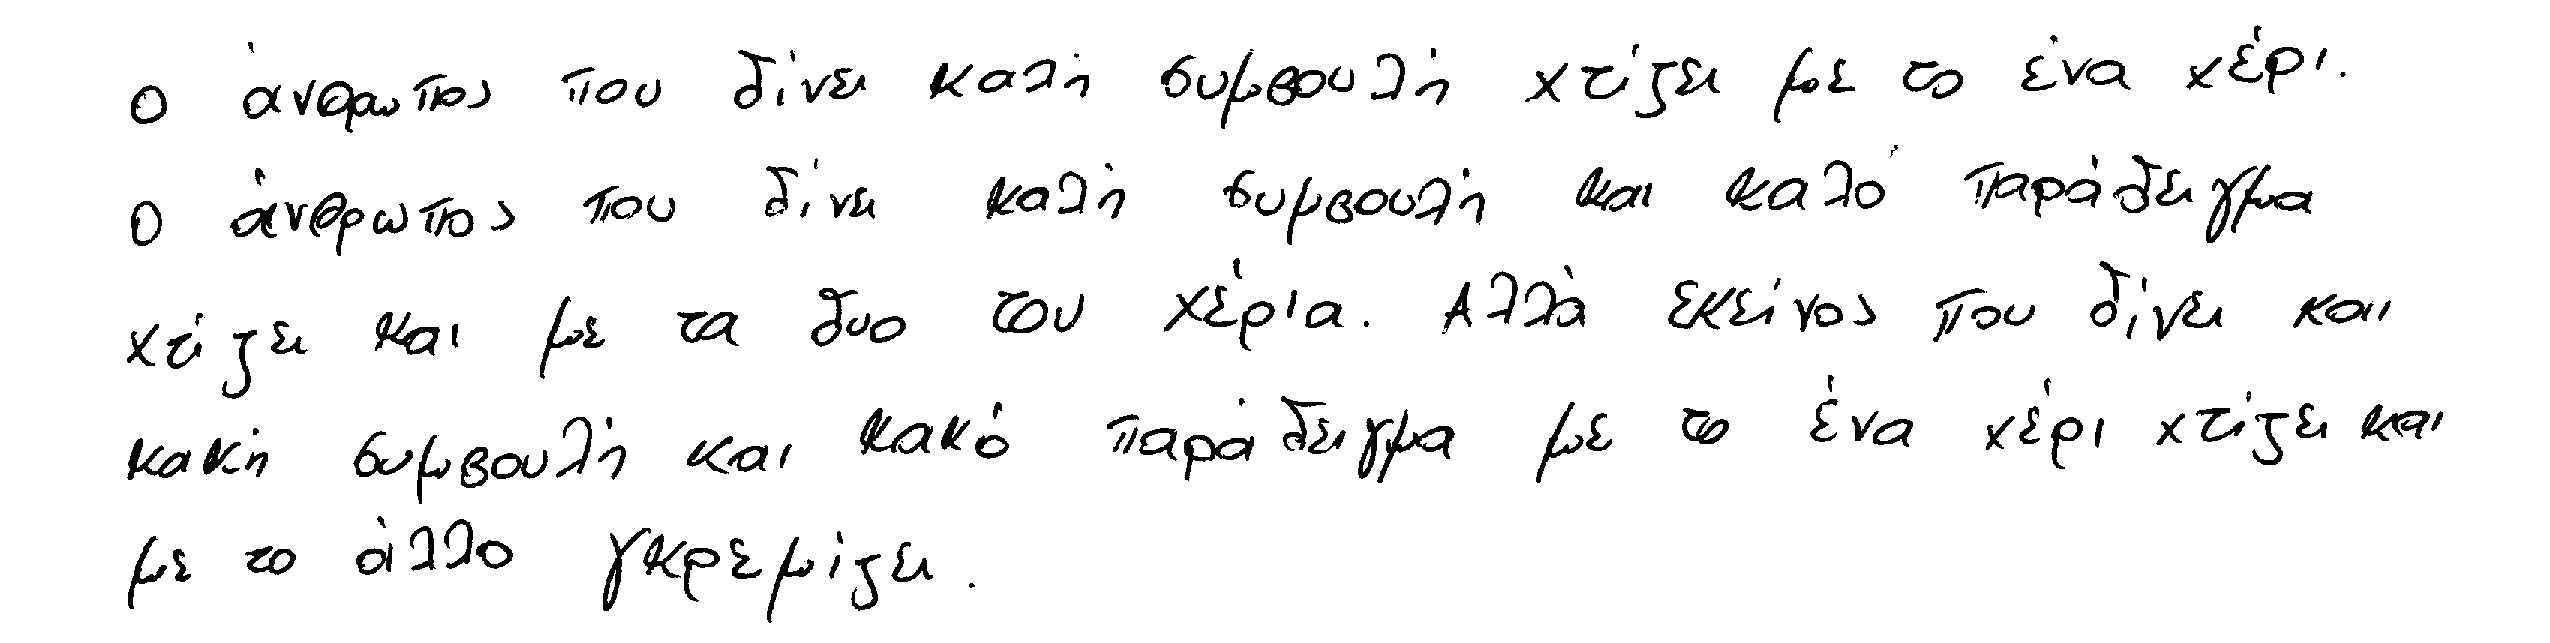 Ο άνθρωπος που δίνει καλή συμβουλή χτίζει με το ένα χέρι.
Ο άνθρωπος που δίνει καλή συμβουλή και καλό παράδειγμα
χτίζει και με τα δυο του χέρια. Αλλά εκείνος που δίνει και
κακή συμβουλή και κακό παράδειγμα με το ένα χέρι χτίζει και
με το άλλο γκρεμίζει.